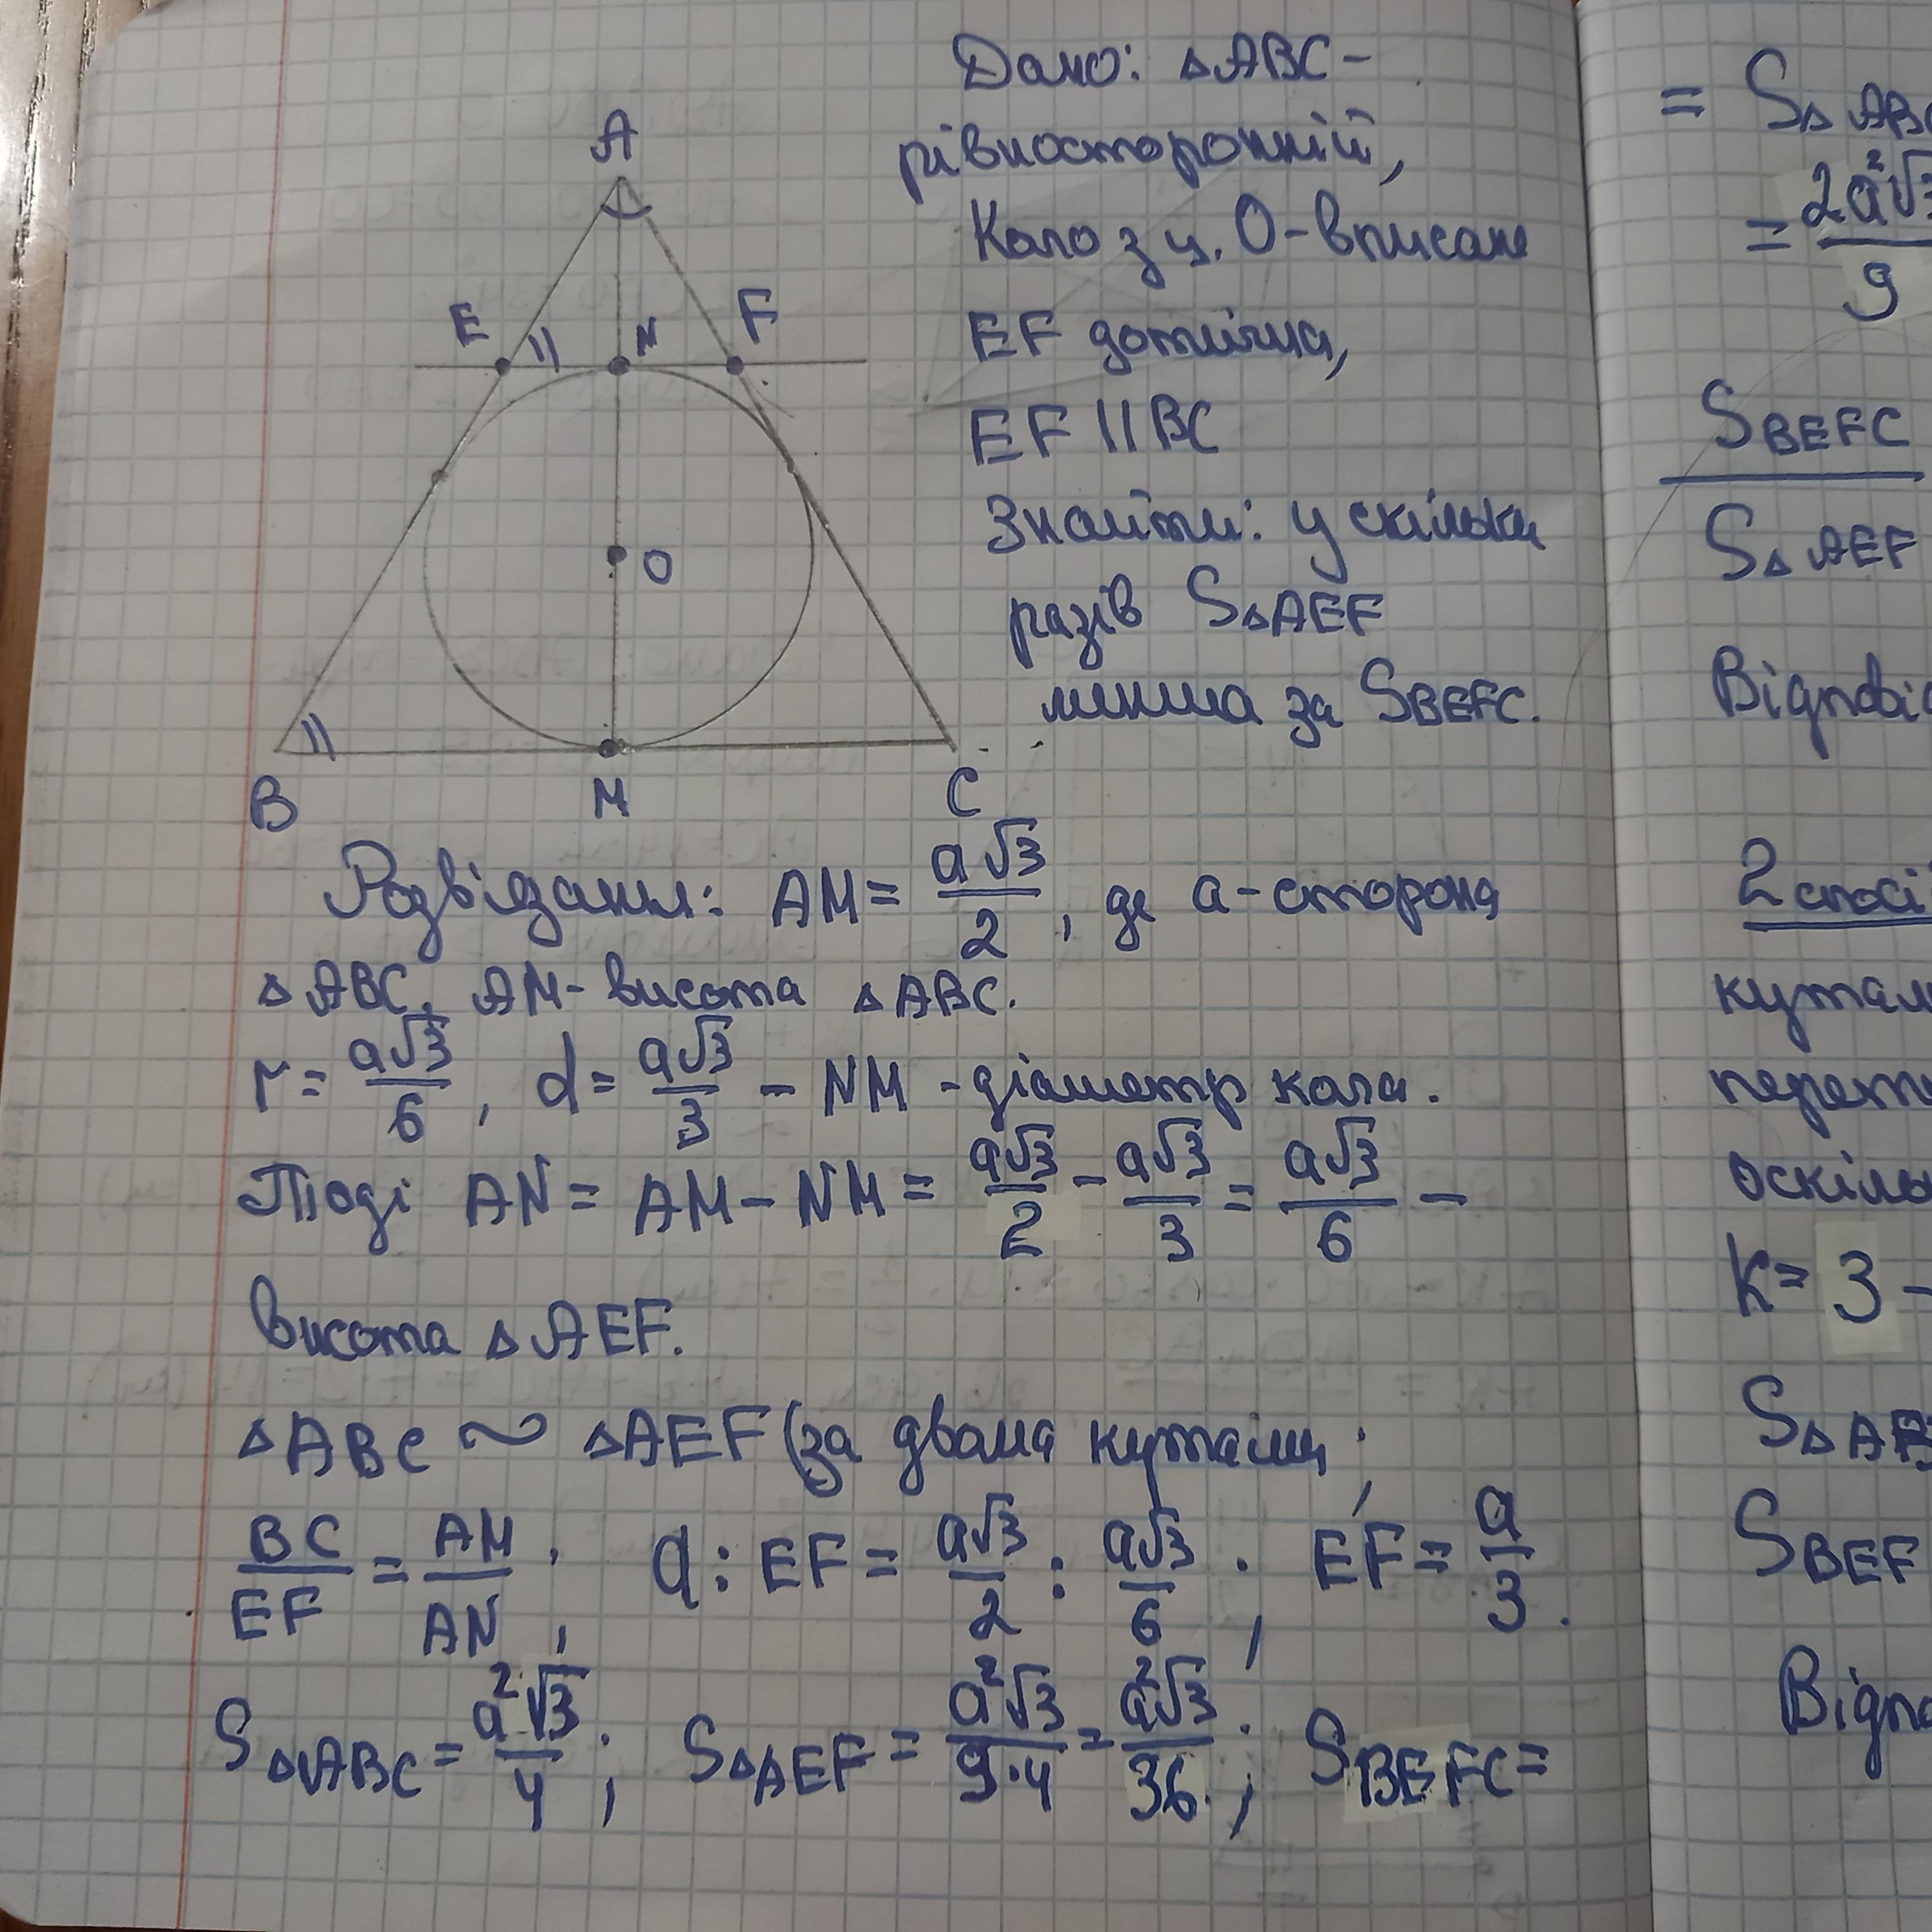 Дано: △ABC –
рівносторонній,
Коло з ц. O - вписане
EF дотична,
EF || BC
Знайти: у скільки
разів S△AEF
менша за SBEFC.
A
E
N
F
O
B
M
C
Розв'язання: AM = a√3/2, де a - сторона
△ABC, AM - висота △ABC.
r = a√3/6, d = a√3/3 – NM - діаметр кола.
Тоді AN = AM – NM = a√3/2 - a√3/3 = a√3/6 –
висота △AEF.
△ABC ~ △AEF (за двома кутами;
BC/EF = AM/AN; a : EF = a√3/2 : a√3/6; EF = a/3.
S△ABC = a²√3/4; S△AEF = a²√3/9·4 = a²√3/36; SBEFC =
= S△ABC
= 2a²√3/9
SBEFC
S△AEF
Відпові
2 спосі
кутам
перет
оскіль
k = 3 –
S△AB
SBEF
Відп